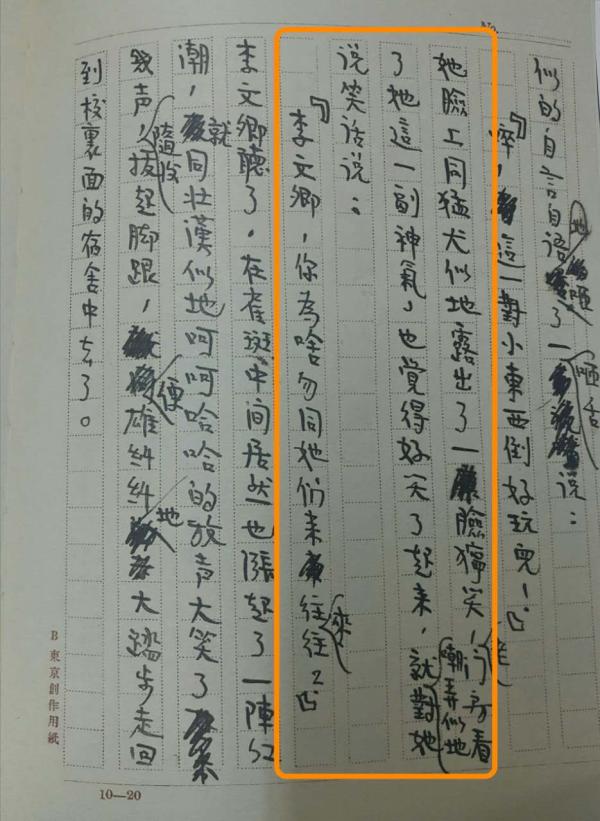 似的自言自语地咂了一咂舌说：
『啐，這一對小東西倒好玩兒！』
她臉上同猛犬似地露出了一臉獰笑，门房看
了她這一副神氣，也覺得好笑了起来，就對她嘲弄似地
说笑话说：
『李文卿，你為啥勿同她们来來往往？』
李文卿聽了，在雀斑中间居然也漲起了一陣红
潮，就同壮漢似地呵呵哈哈的放声大笑了
幾声，随後拔起脚跟，便雄糾糾地大踏步走回
到校裏面的宿舍中去了。
B 東京創作用紙
10—20
No.